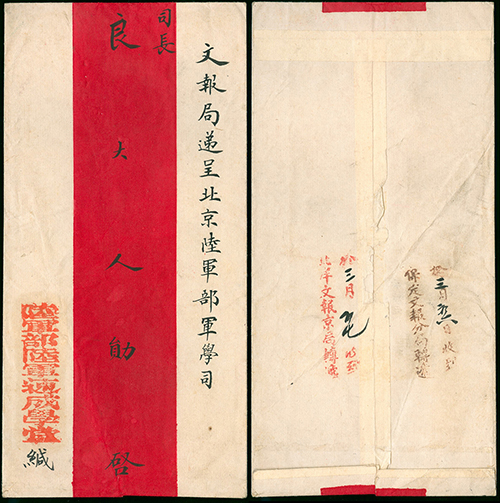 文報局递呈北京陸軍部軍學司
司長
良大人勛啓
陸軍部陸軍速成學堂
緘
於三月日收到
保定文報分局轉遞
於三月收到
北洋文報京局轉遞